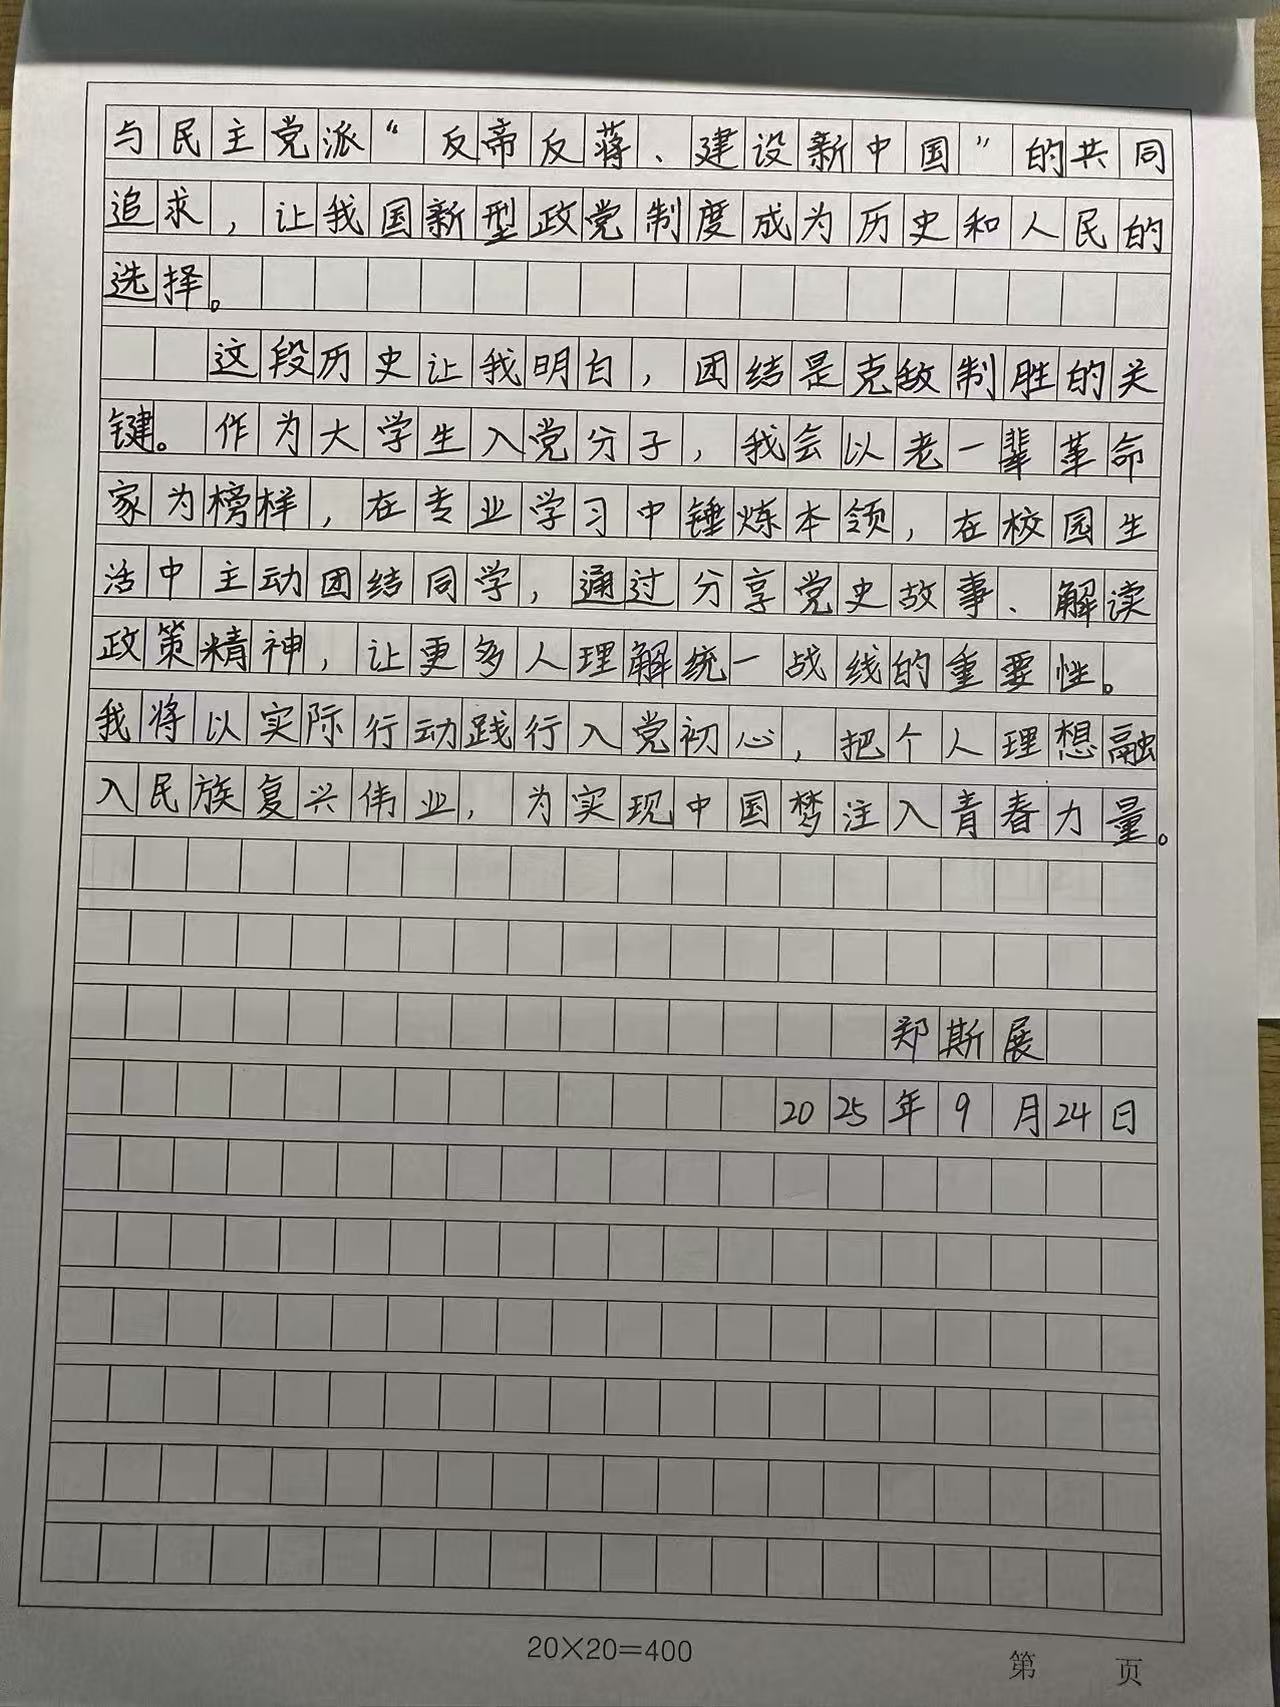 与民主党派“反帝反蒋、建设新中国”的共同
追求，让我国新型政党制度成为历史和人民的
选择。
这段历史让我明白，团结是克敌制胜的关
键。作为大学生入党分子，我会以老一辈革命
家为榜样，在专业学习中锤炼本领，在校园生
活中主动团结同学，通过分享党史故事、解读
政策精神，让更多人理解统一战线的重要性。
我将以实际行动践行入党初心，把个人理想融
入民族复兴伟业，为实现中国梦注入青春力量。
郑斯展
2025年9月24日
20×20=400
第 页